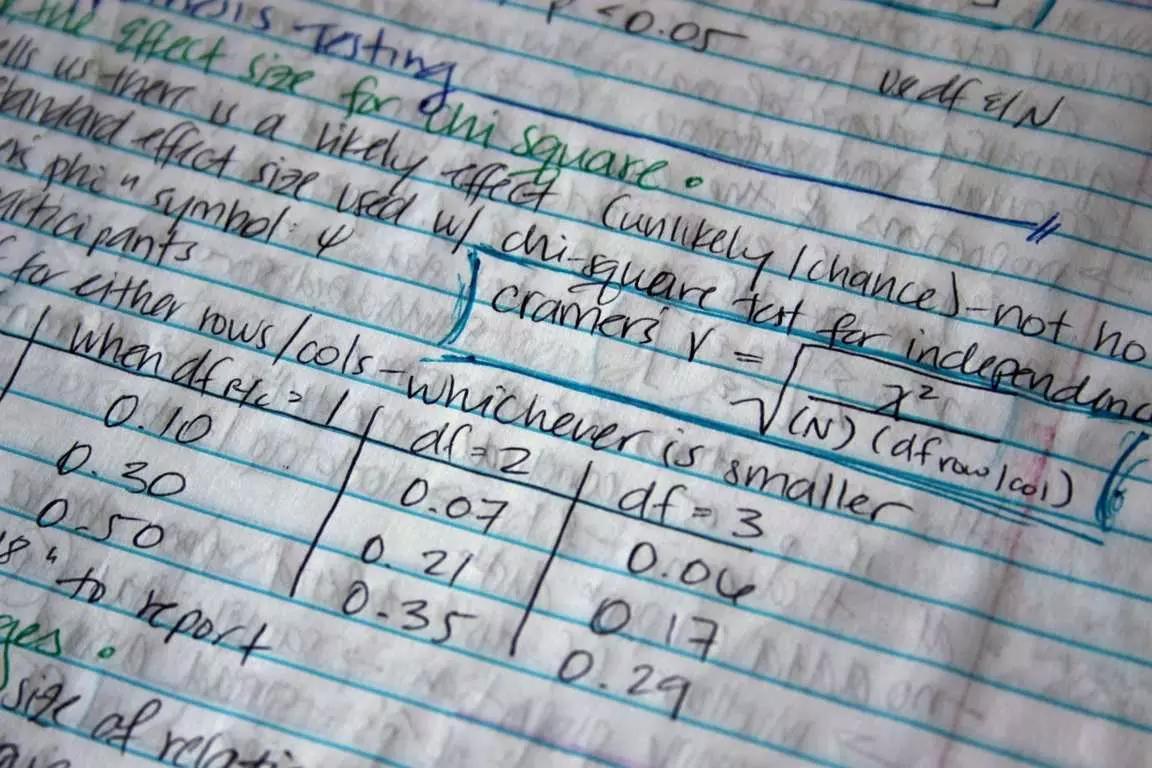 p < 0.05
use df & N
Testing
the effect size for chi square.
us there is a likely effect (unlikely / chance) - not no
standard effect size used w/ chi-square test for independence
phi" symbol: φ
cramers V = √ χ² / (N) (df row/col)
participants
for either rows/cols - whichever is smaller
when df R/C = 1 | df = 2 | df = 3
0.10 | 0.07 | 0.06
0.30 | 0.21 | 0.17
0.50 | 0.35 | 0.29
" to report
size of relati